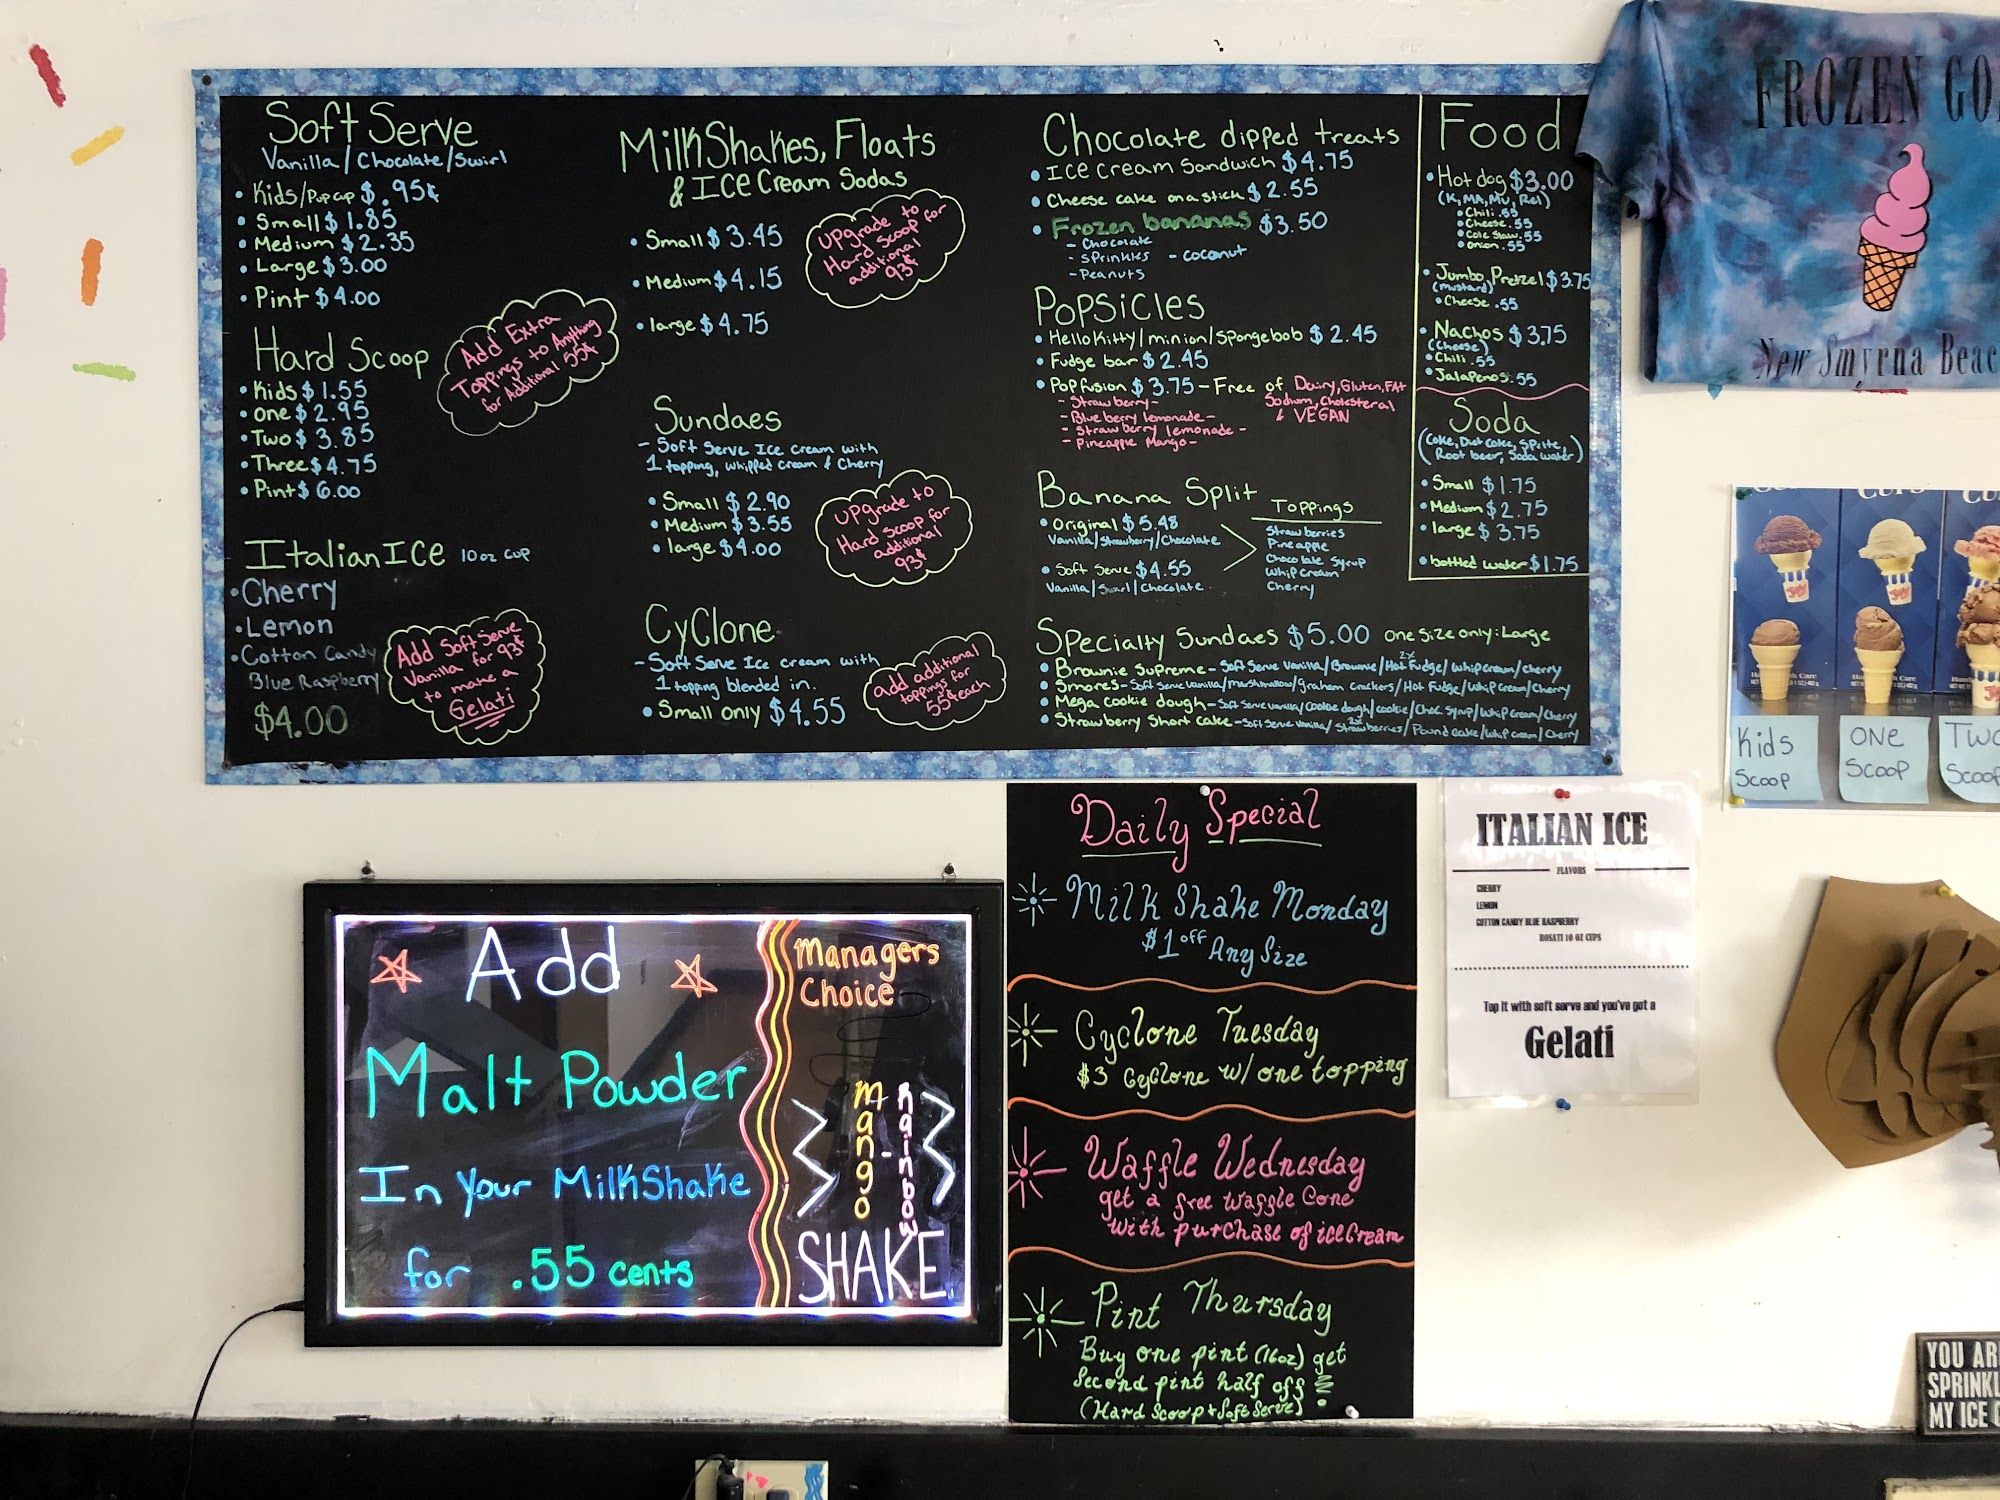 Soft Serve
Vanilla/Chocolate/Swirl
• Kids/Pup cup $.95¢
• Small $1.85
• Medium $2.35
• Large $3.00
• Pint $4.00
Hard Scoop
• Kids $1.55
• One $2.95
• Two $3.85
• Three $4.75
• Pint $6.00
Add Extra
Toppings to Anything
for Additional 55¢
Italian Ice 10 oz cup
• Cherry
• Lemon
• Cotton Candy
Blue Raspberry
$4.00
Add Soft Serve
Vanilla for 93¢
to make a
Gelati
MilkShakes, Floats
& Ice Cream Sodas
• Small $3.45
• Medium $4.15
• large $4.75
upgrade to
Hard Scoop for
additional
93¢
Sundaes
- Soft Serve Ice cream with
1 topping, whipped cream & Cherry
• Small $2.90
• Medium $3.55
• large $4.00
upgrade to
Hard scoop for
additional
93¢
Cyclone
- Soft Serve Ice cream with
1 topping blended in.
• Small only $4.55
add additional
toppings for
55¢ each
Chocolate dipped treats
• Ice Cream Sandwich $4.75
• Cheese cake on a stick $2.55
• Frozen bananas $3.50
- Chocolate
- Sprinkles - coconut
- Peanuts
Popsicles
• Hello Kitty/minion/Spongebob $2.45
• Fudge bar $2.45
• Pop fusion $3.75 - Free of Dairy, Gluten, FAt
Sodium, Cholesteral
& VEGAN
- Strawberry -
- Blueberry lemonade -
- Strawberry lemonade -
- Pineapple Mango -
Banana Split
• Original $5.48
Vanilla/Strawberry/Chocolate
• Soft Serve $4.55
Vanilla/Swirl/Chocolate
Toppings
Strawberries
Pineapple
Chocolate Syrup
Whip Cream
Cherry
Specialty Sundaes $5.00 One Size only: Large
• Brownie Supreme - Soft Serve Vanilla/Brownie/2x Hot Fudge/Whip Cream/Cherry
• Smores - Soft Serve Vanilla/Marshmallow/Graham Crackers/Hot Fudge/Whip Cream/Cherry
• Mega cookie dough - Soft Serve Vanilla/Cookie dough/cookie/Choc Syrup/Whip Cream/Cherry
• Strawberry Short cake - Soft Serve Vanilla/2x Strawberries/Pound Cake/Whip Cream/Cherry
Food
• Hot dog $3.00
(K, MA, Mu, Rel)
• Chili .55
• Cheese .55
• Cole Slaw .55
• onion .55
• Jumbo Pretzel $3.75
(mustard)
• Cheese .55
• Nachos $3.75
(Cheese)
• Chili .55
• Jalapenos .55
Soda
(Coke, Diet Coke, Sprite,
Root beer, Soda water)
• Small $1.75
• Medium $2.75
• large $3.75
• bottled water $1.75
FROZEN GO
New Smyrna Beac
Kids
Scoop
ONE
SCOOP
TWO
Scoop
Add
Malt Powder
In your MilkShake
for .55 cents
Managers
Choice
Mango-
Rainbow
SHAKE
Daily Special
Milk Shake Monday
$1 off Any Size
Cyclone Tuesday
$3 Cyclone w/ one topping
Waffle Wednesday
get a free Waffle Cone
with purchase of ice Cream
Pint Thursday
Buy one pint (16oz) get
Second pint half off
(Hard Scoop + Soft Serve)
ITALIAN ICE
FLAVORS
CHERRY
LEMON
COTTON CANDY BLUE RASPBERRY
ROSATI 10 OZ CUPS
Top it with soft serve and you've got a
Gelati
YOU AR
SPRINKL
MY ICE C